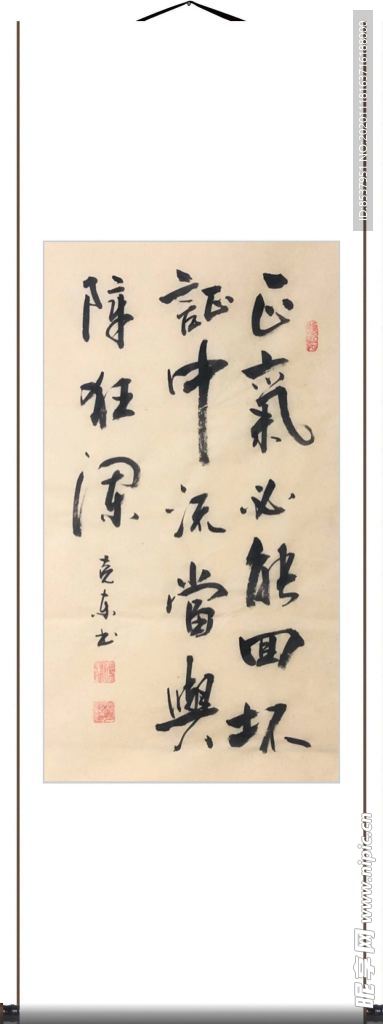 正氣必能回坏
証中流當與
障狂瀾
克东书
ID:8537951 NO:20201118163716188000
昵享网 www.nipic.cn